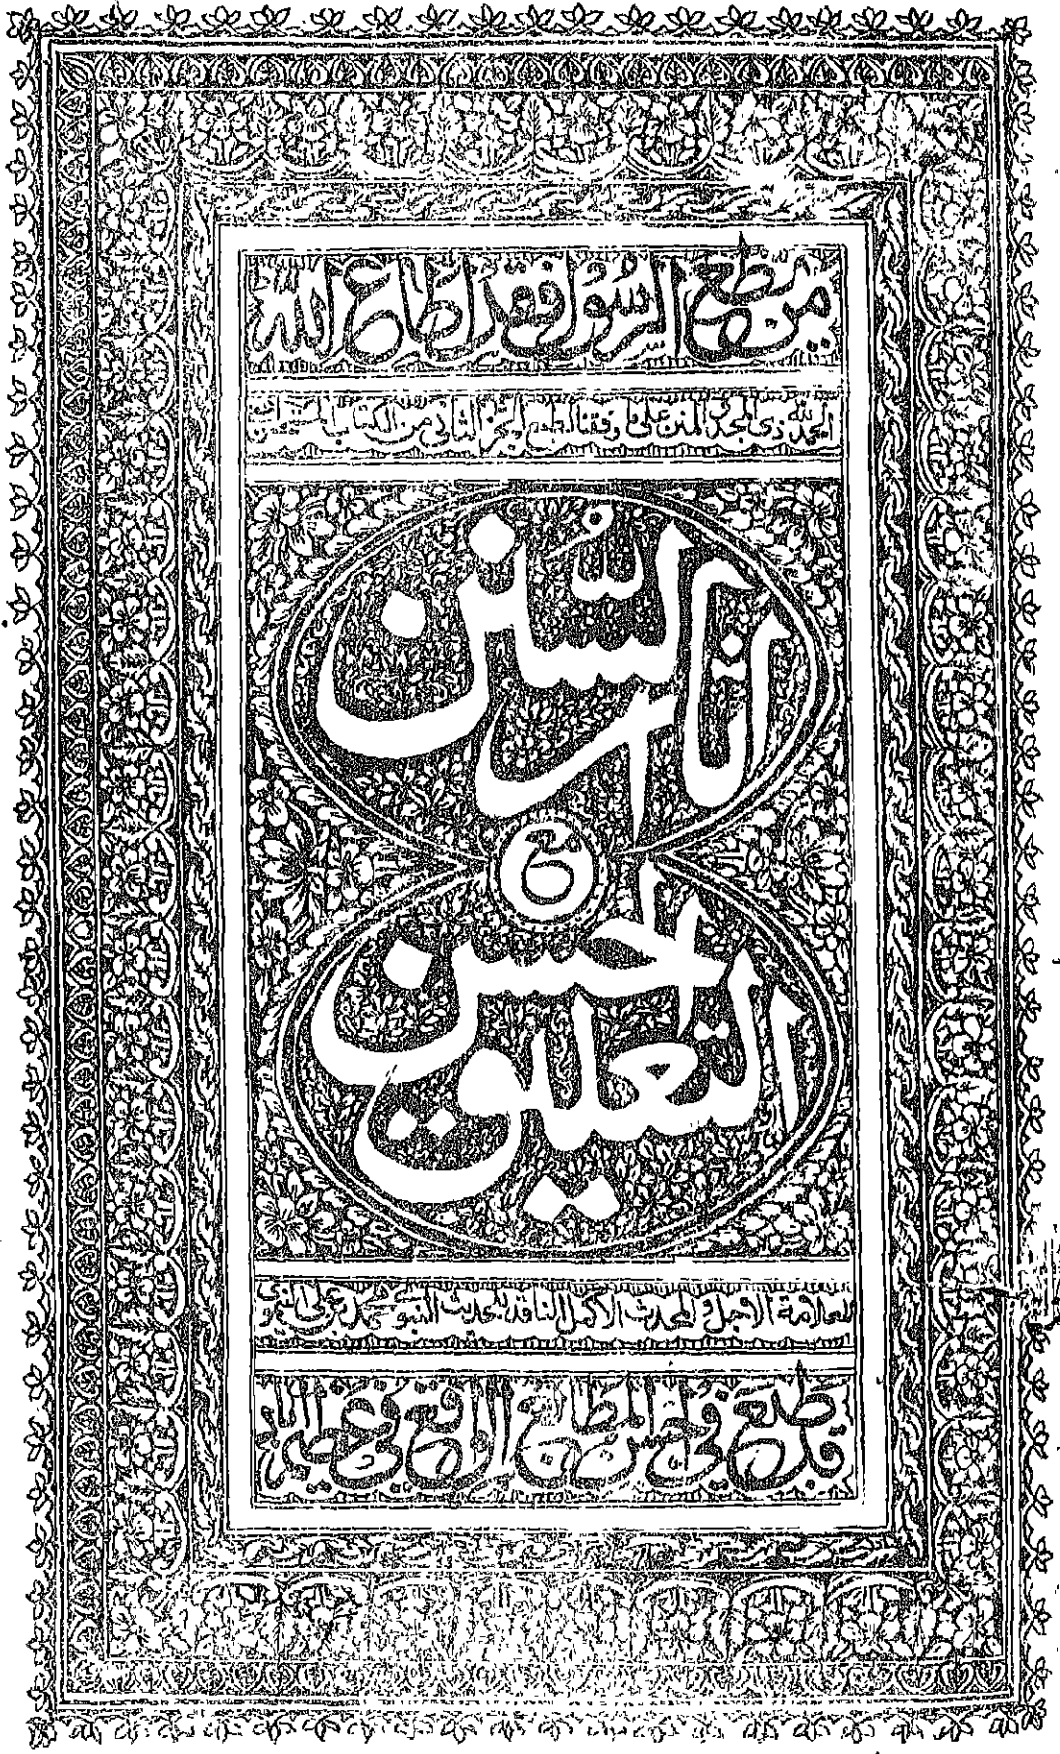 من يطع الرسول فقد اطاع الله
الحمد لله ذي المجد والمنن على ما وفقنا لطبع الجزء الثاني من الكتاب
آثار السنن
مع
التعليق الحسن
للعلامة الاجل والمحدث الاكمل الناقد لحديث النبوي محمد بن علي النيموي
قد طبع في احسن المطابع الواقع في عظيم آباد